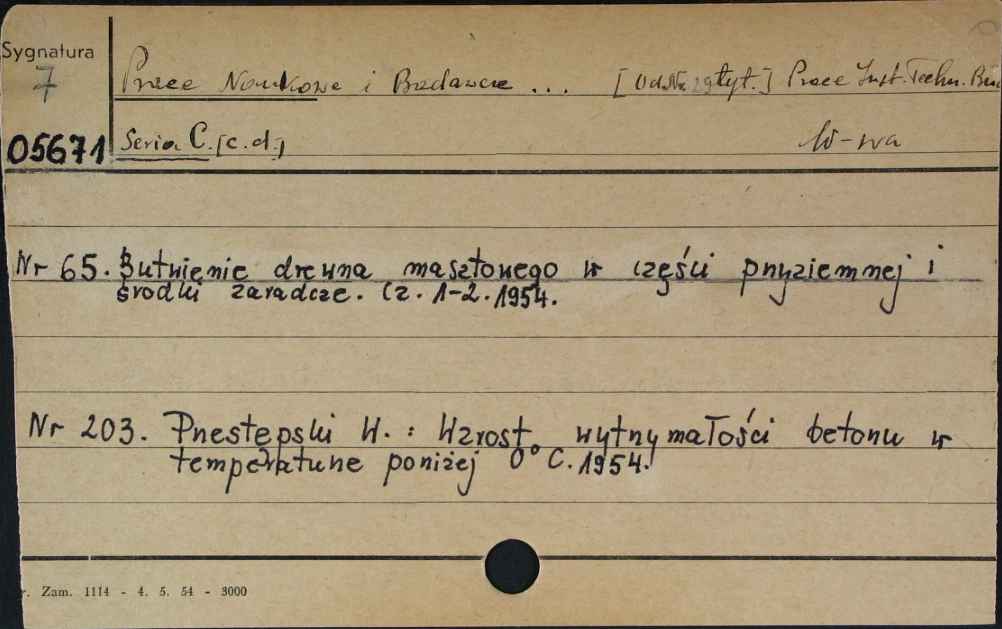 Sygnatura
7
Prace Naukowe i Badawcze ... [Od Nr 29 tyt.] Prace Inst. Techn. Bud
05671 Seria C. [c.d.] W-wa
Nr 65. Butwienie drewna masztowego w części przyziemnej i
środki zaradcze. Cz. 1-2. 1954.
Nr 203. Przestępski W. : Wzrost wytrzymałości betonu w
temperaturze poniżej 0° C. 1954.
r. Zam. 1114 - 4. 5. 54 - 3000